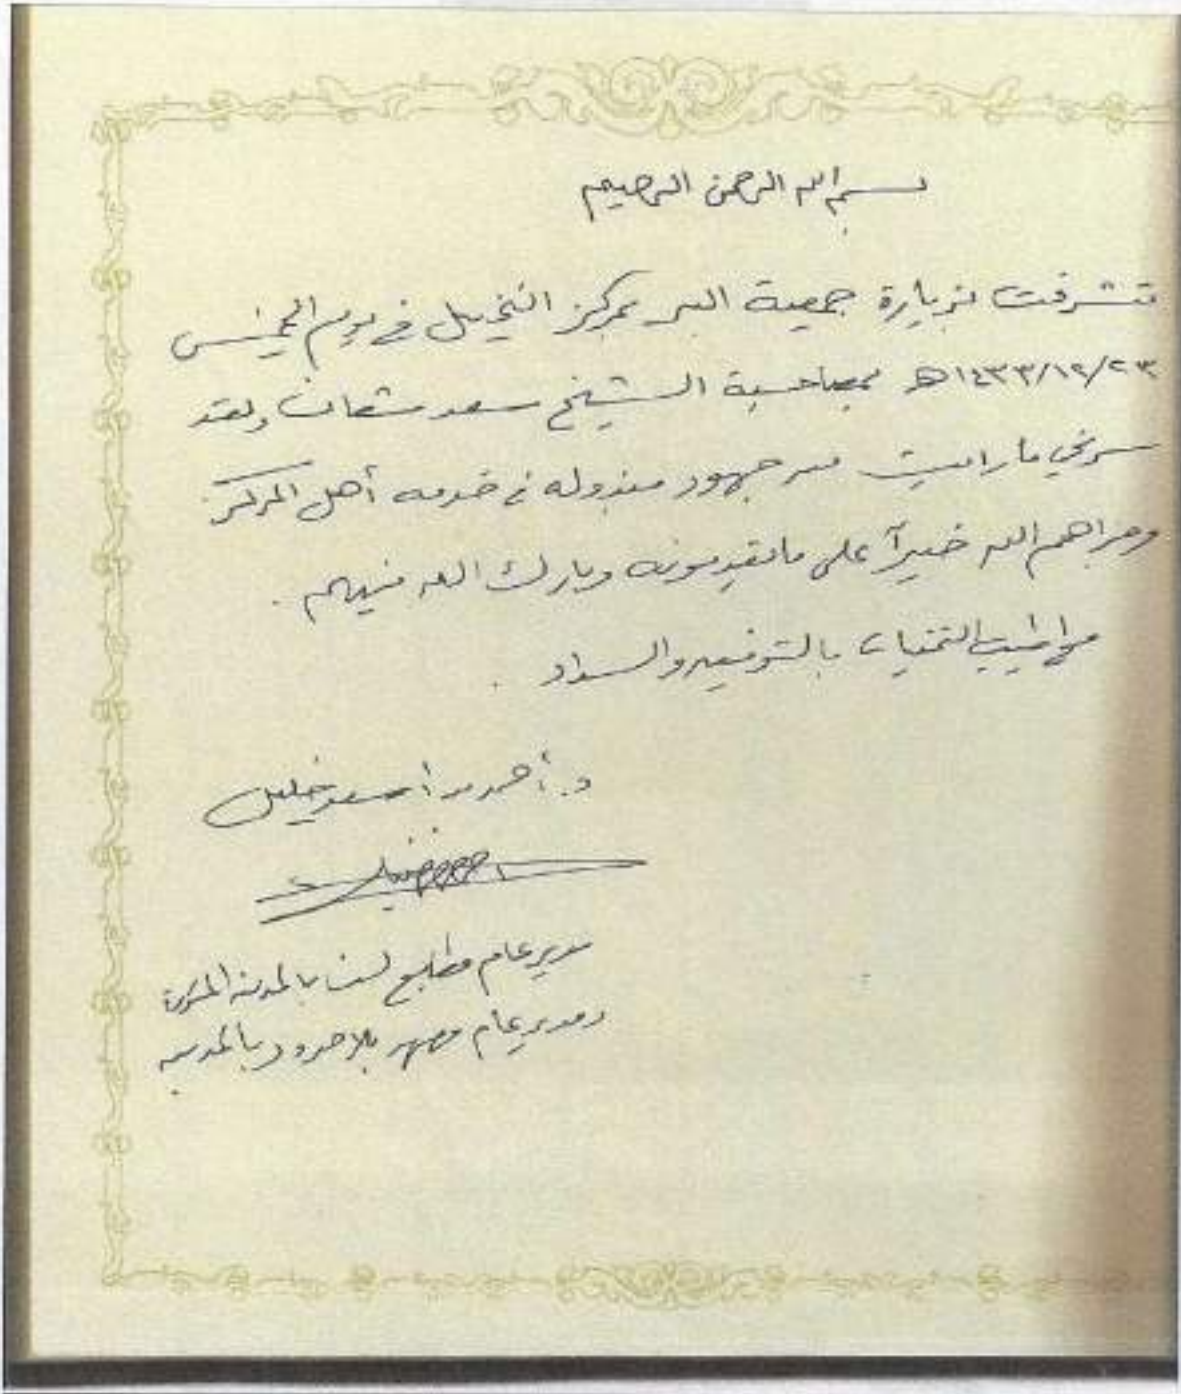 بسم الله الرحمن الرحيم
تشرفت بزيارة جمعية البر بمركز النخيل في يوم الخميس
٢٣/١٢/١٤٣٣هـ بمصاحبة الشيخ سعد ولقد
سرني ما رأيت من جهود مبذوله في خدمه أهل المركز
وجزاهم الله خيرآ على ما يقدمونه وبارك الله فيهم .
مع اطيب التمنيات بالتوفيق والسداد .
د. أحمد خليل
مدير عام مطابع بالمدينة المنورة
ومدير عام بلا حدود بالمدينه